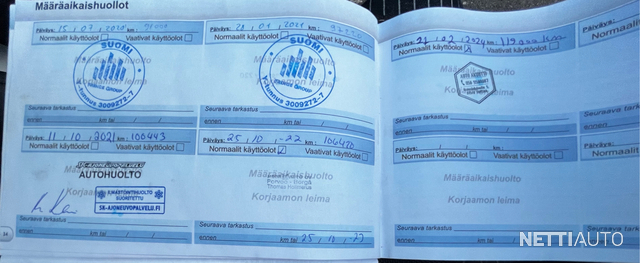 Määräaikaishuollot
Päiväys: 15 / 07 / 2020 km:
Normaalit käyttöolot Vaativat käyttöolot
SUOMI
Y-tunnus 3009272-7
Korjaamon leima
Seuraava tarkastus
ennen km tai / /
Päiväys: 28 / 01 / 2021 km:
Normaalit käyttöolot Vaativat käyttöolot
SUOMI
Y-tunnus 3009272-7
Korjaamon leima
Seuraava tarkastus
ennen km tai / /
Päiväys: 21 / 02 / 2024 km:
Normaalit käyttöolot Vaativat käyttöolot
Määräaikaishuolto
Korjaamon leima
Seuraava tarkastus
ennen km tai / /
Normaalit
Päiväys: 11 / 10 / 2021 km: 100443
Normaalit käyttöolot Vaativat käyttöolot
AUTOHUOLTO
ILMASTOINTIHUOLTO
SUORITETTU
SK-AJONEUVOPALVELU.FI
Seuraava tarkastus
ennen km tai / /
Päiväys: 25 / 10 / -22 km: 106420
Normaalit käyttöolot Vaativat käyttöolot
Määräaikaishuolto
Korjaamon leima
Seuraava tarkastus
ennen km tai 25 / 10 / -23
Päiväys: / / km:
Normaalit käyttöolot Vaativat käyttöolot
Määräaikaishuolto
Korjaamon leima
Seuraava tarkastus
ennen km tai / /
Normaalit
NETTIAUTO